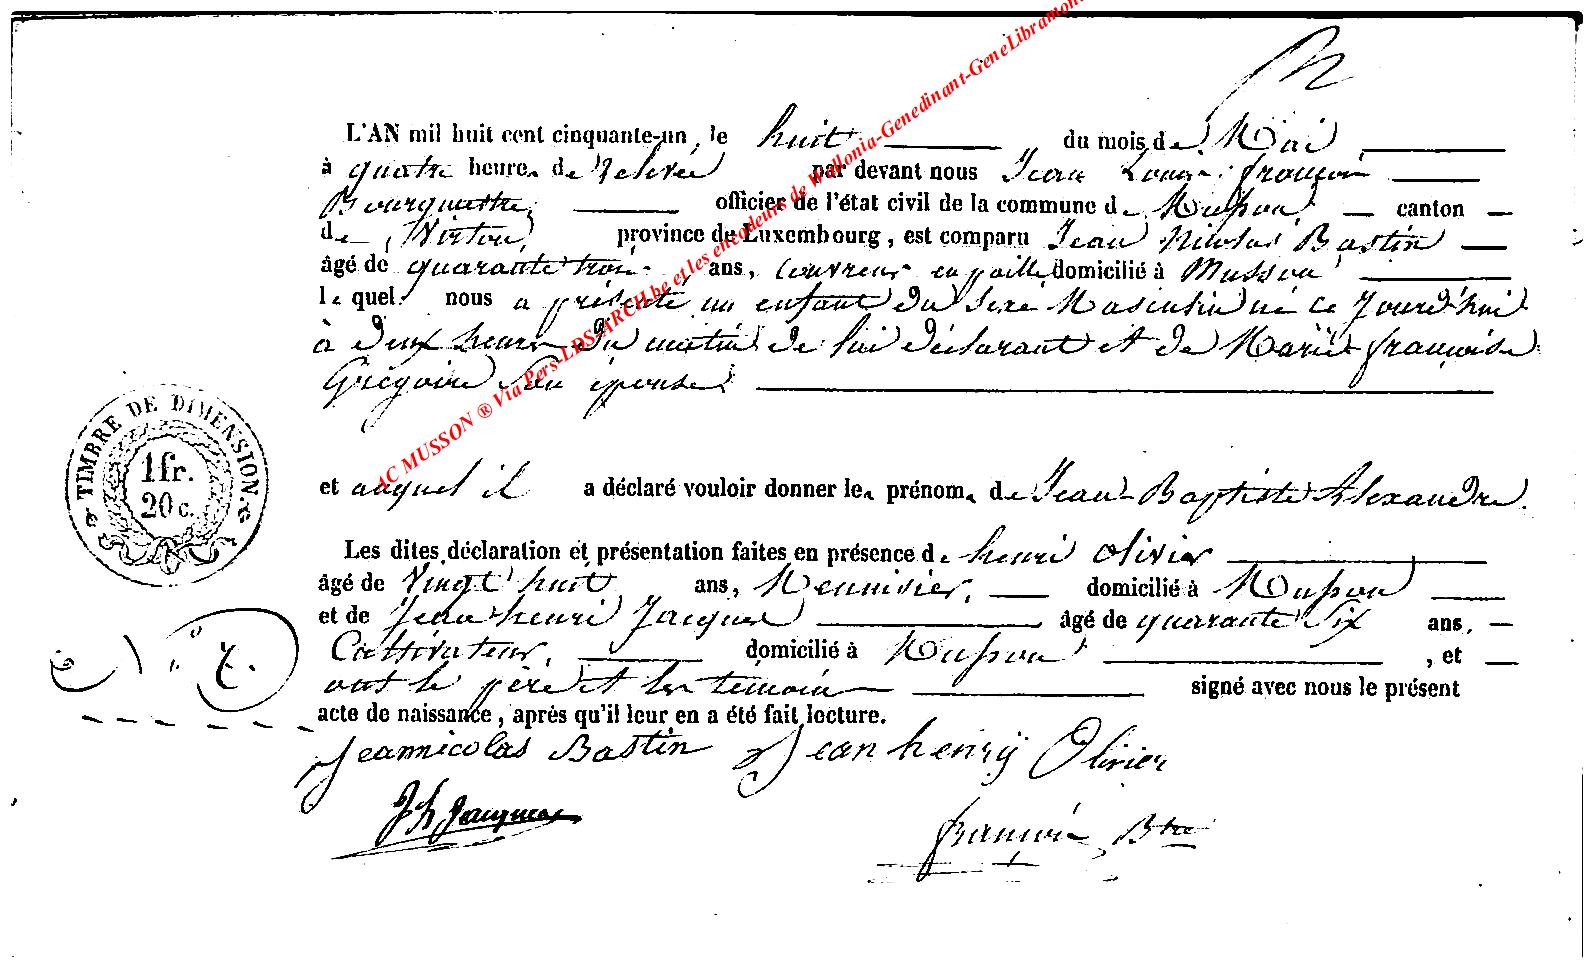 L'AN mil huit cent cinquante-un, le huit du mois de Mai
à quatre heures de Relevée par devant nous Jean Louis françois
Bourgmestre, officier de l'état civil de la commune de Musson, canton
de Virton, province de Luxembourg, est comparu Jean Nicolas Bastin
âgé de quarante trois ans, Couvreur en paille domicilié à Musson
lequel nous a présenté un enfant du sexe Masculin né ce jourd'hui
à deux heures du matin de lui déclarant et de Marie françoise
Grégoire son épouse,
et auquel il a déclaré vouloir donner les prénoms de Jean-Baptiste Alexandre.
Les dites déclaration et présentation faites en présence de henri Olivier
âgé de Vingt huit ans, Menuisier, domicilié à Musson
et de Jean henri Jacques âgé de quarante Six ans,
Cultivateur, domicilié à Musson, et
ont le père et les témoins signé avec nous le présent
acte de naissance, après qu'il leur en a été fait lecture.
Jeannicolas Bastin Jean henrÿ Olivier
J h Jacques
françois Btre
TIMBRE DE DIMENSION.
1 fr.
20 c.
n° 7.
AC MUSSON ® Via Pers-LDS-ARCH.be et les encodeurs de Wallonia-Genedinant-GeneLibramont